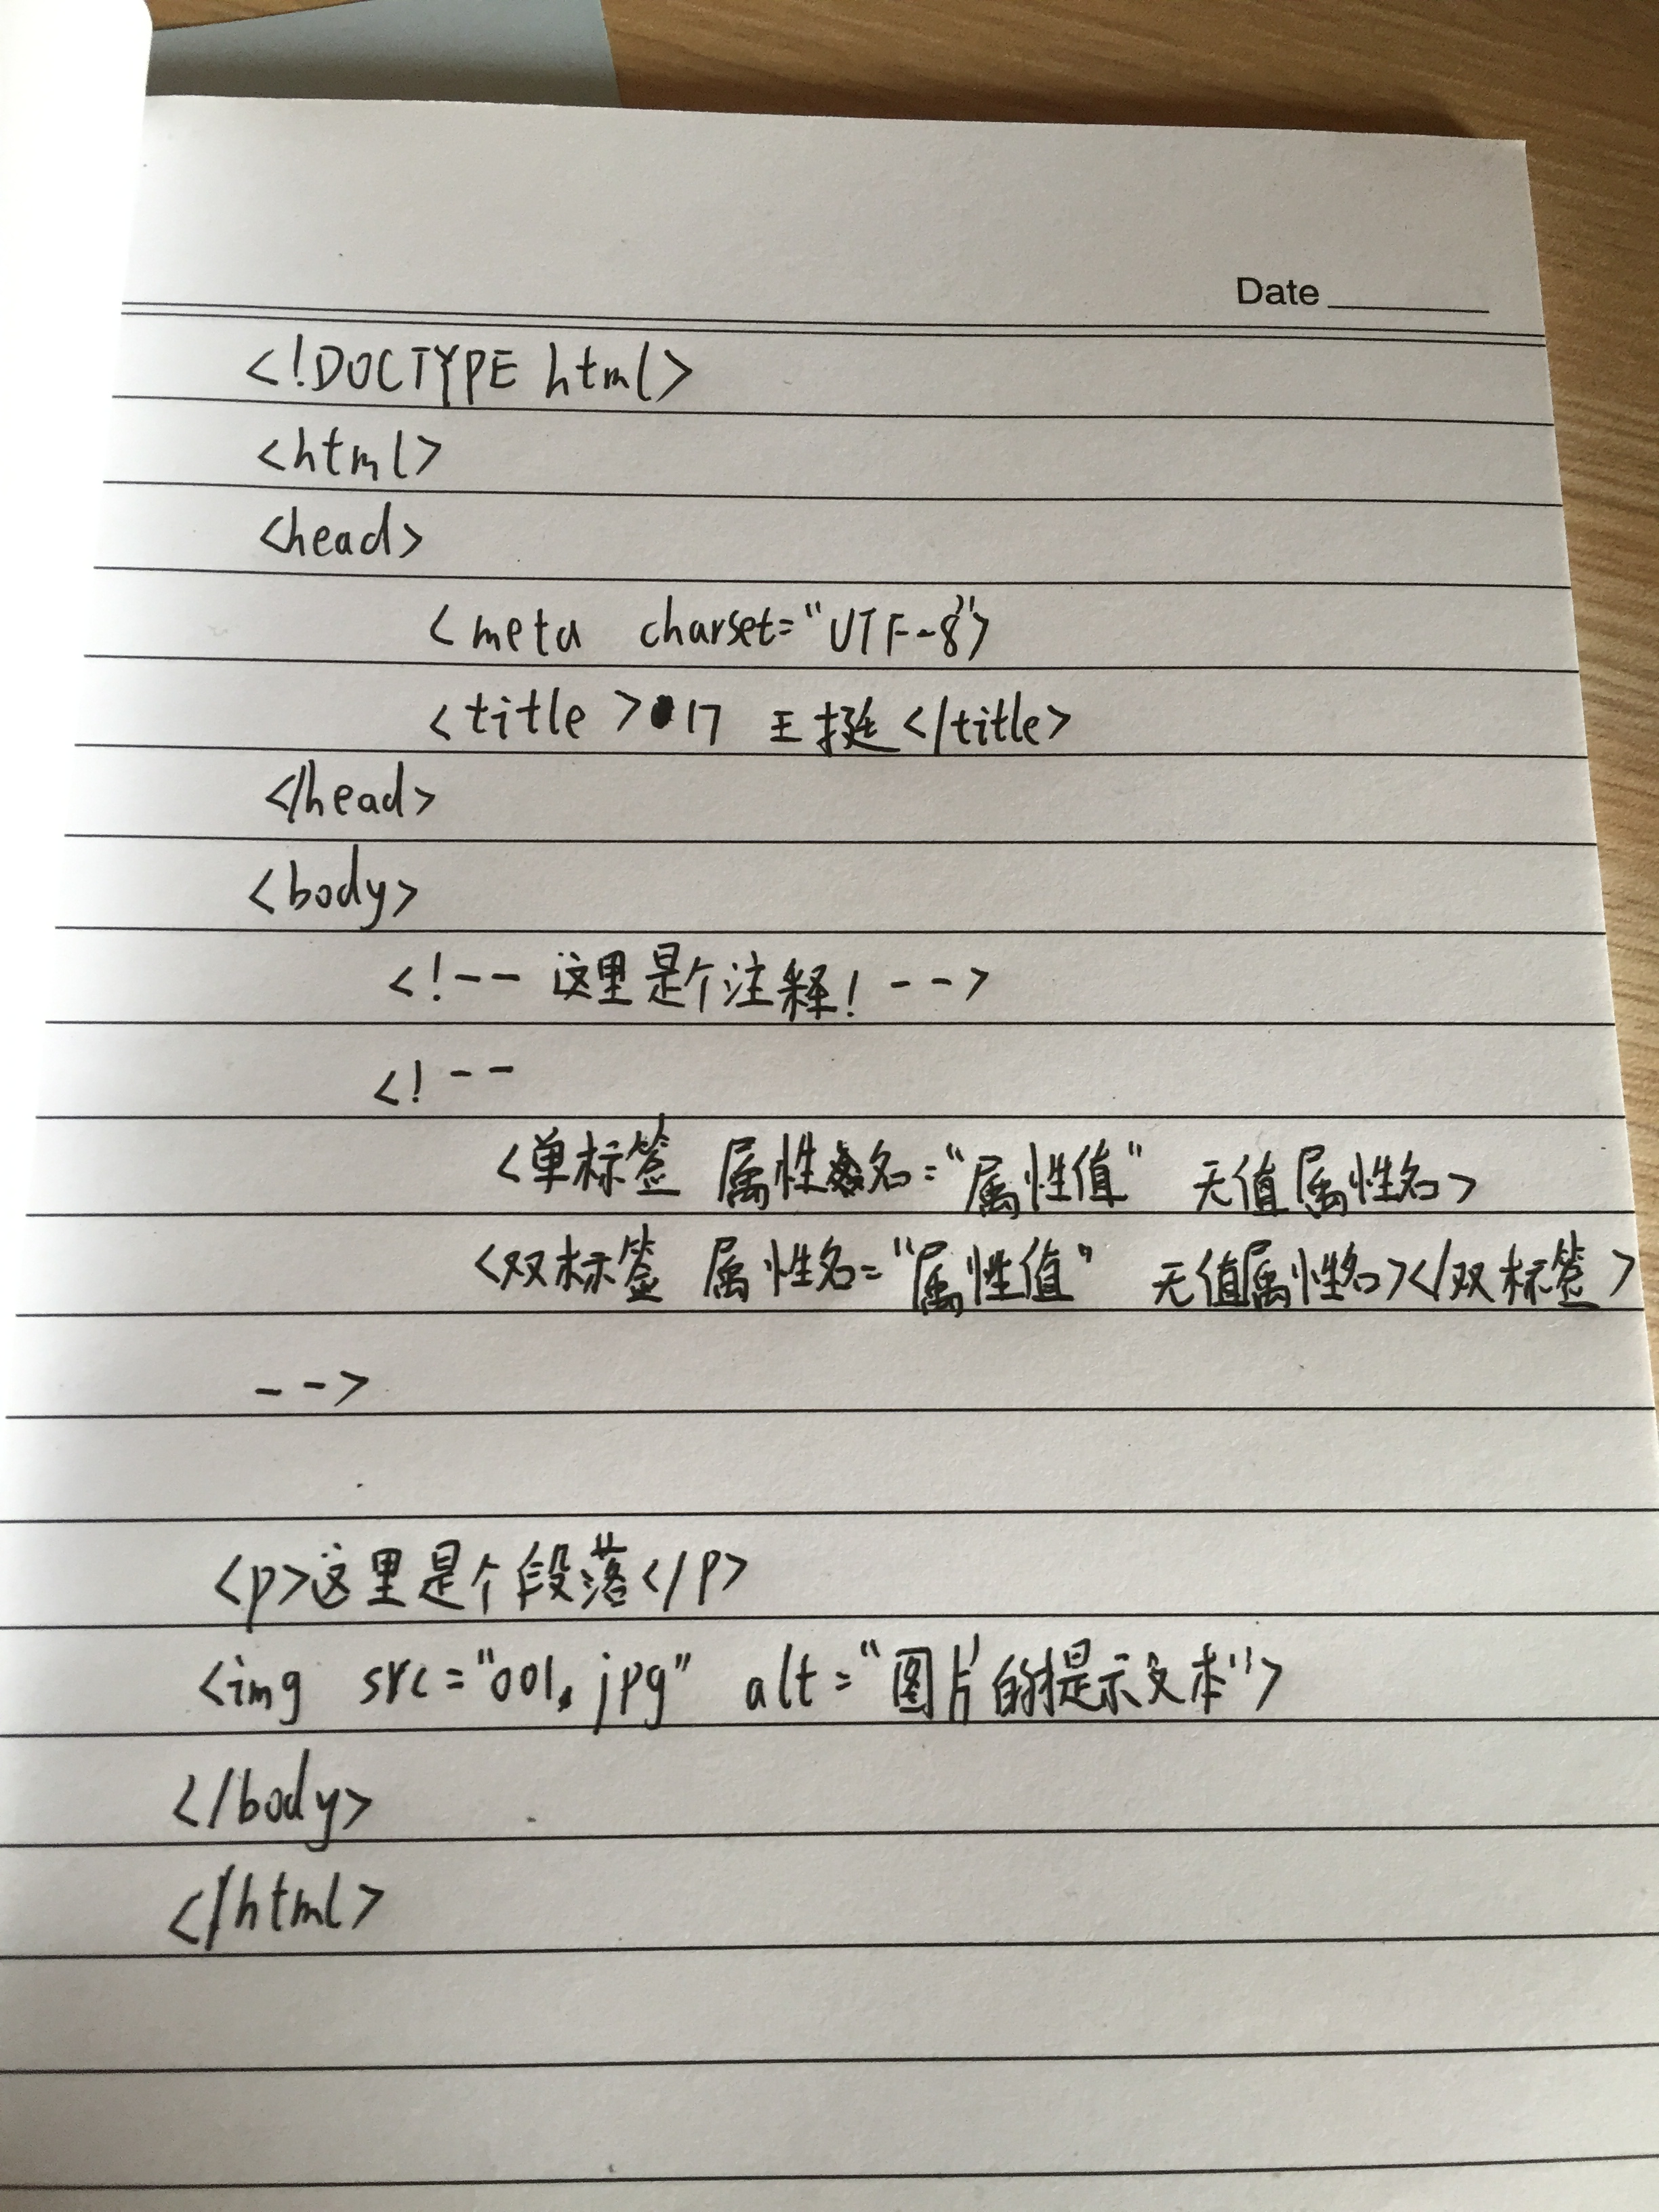 Date
<!DOCTYPE html>
<html>
<head>
<meta charset="UTF-8">
<title>17 王挺</title>
</head>
<body>
<!-- 这里是个注释! -->
<!--
<单标签 属性名="属性值" 无值属性名>
<双标签 属性名="属性值" 无值属性名></双标签>
-->
<p>这里是个段落</p>
<img src="001.jpg" alt="图片的提示文本">
</body>
</html>